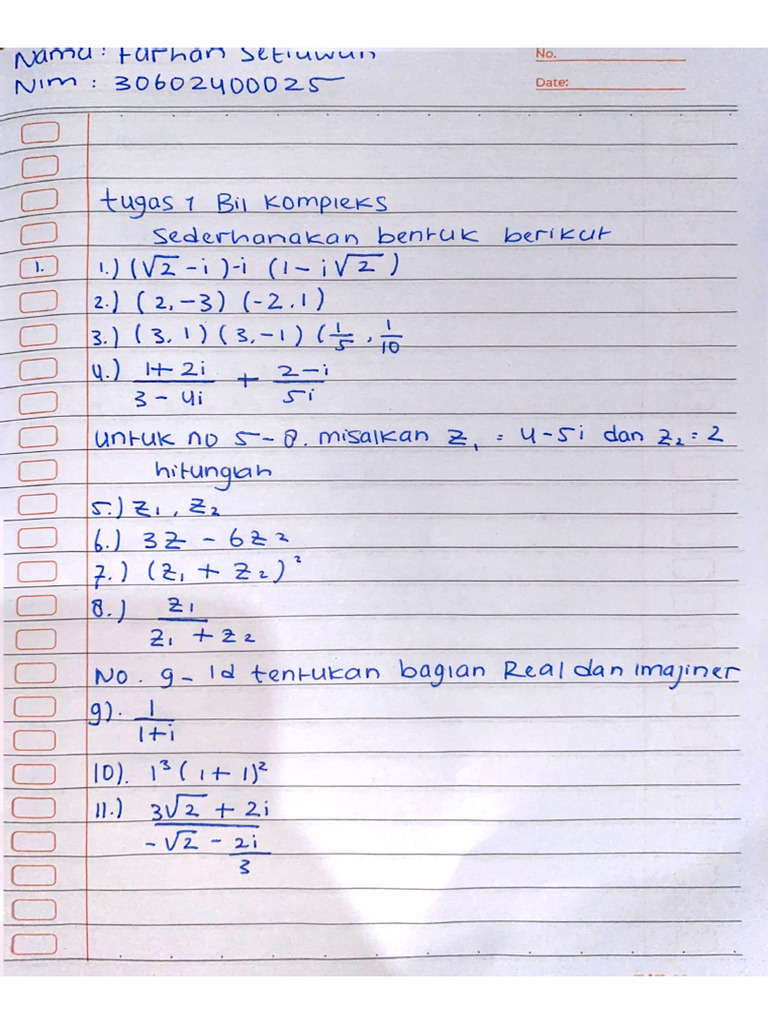 Nama : Farhan Setiawan
No.
Nim : 30602400025
Date:
tugas 1 Bil Kompleks
Sederhanakan bentuk berikut
1. 1.) (√2 - i) - i (1 - i√2)
2.) (2, -3) (-2. 1)
3.) (3. 1) (3. -1) (1/5 , 1/10
4.) (1 + 2i)/(3 - 4i) + (2 - i)/(5i)
untuk no 5 - 8. misalkan z₁ = 4 - 5i dan z₂ = 2
hitunglah
5.) z₁ , z₂
6.) 3z - 6z2
7.) (z₁ + z₂)²
8.) z₁/(z₁ + z₂)
No. 9 - 1d tentukan bagian Real dan imajiner
9). 1/(1+i)
10). 1³ (1 + 1)²
11.) (3√2 + 2i)/(-√2 - 2i/3)